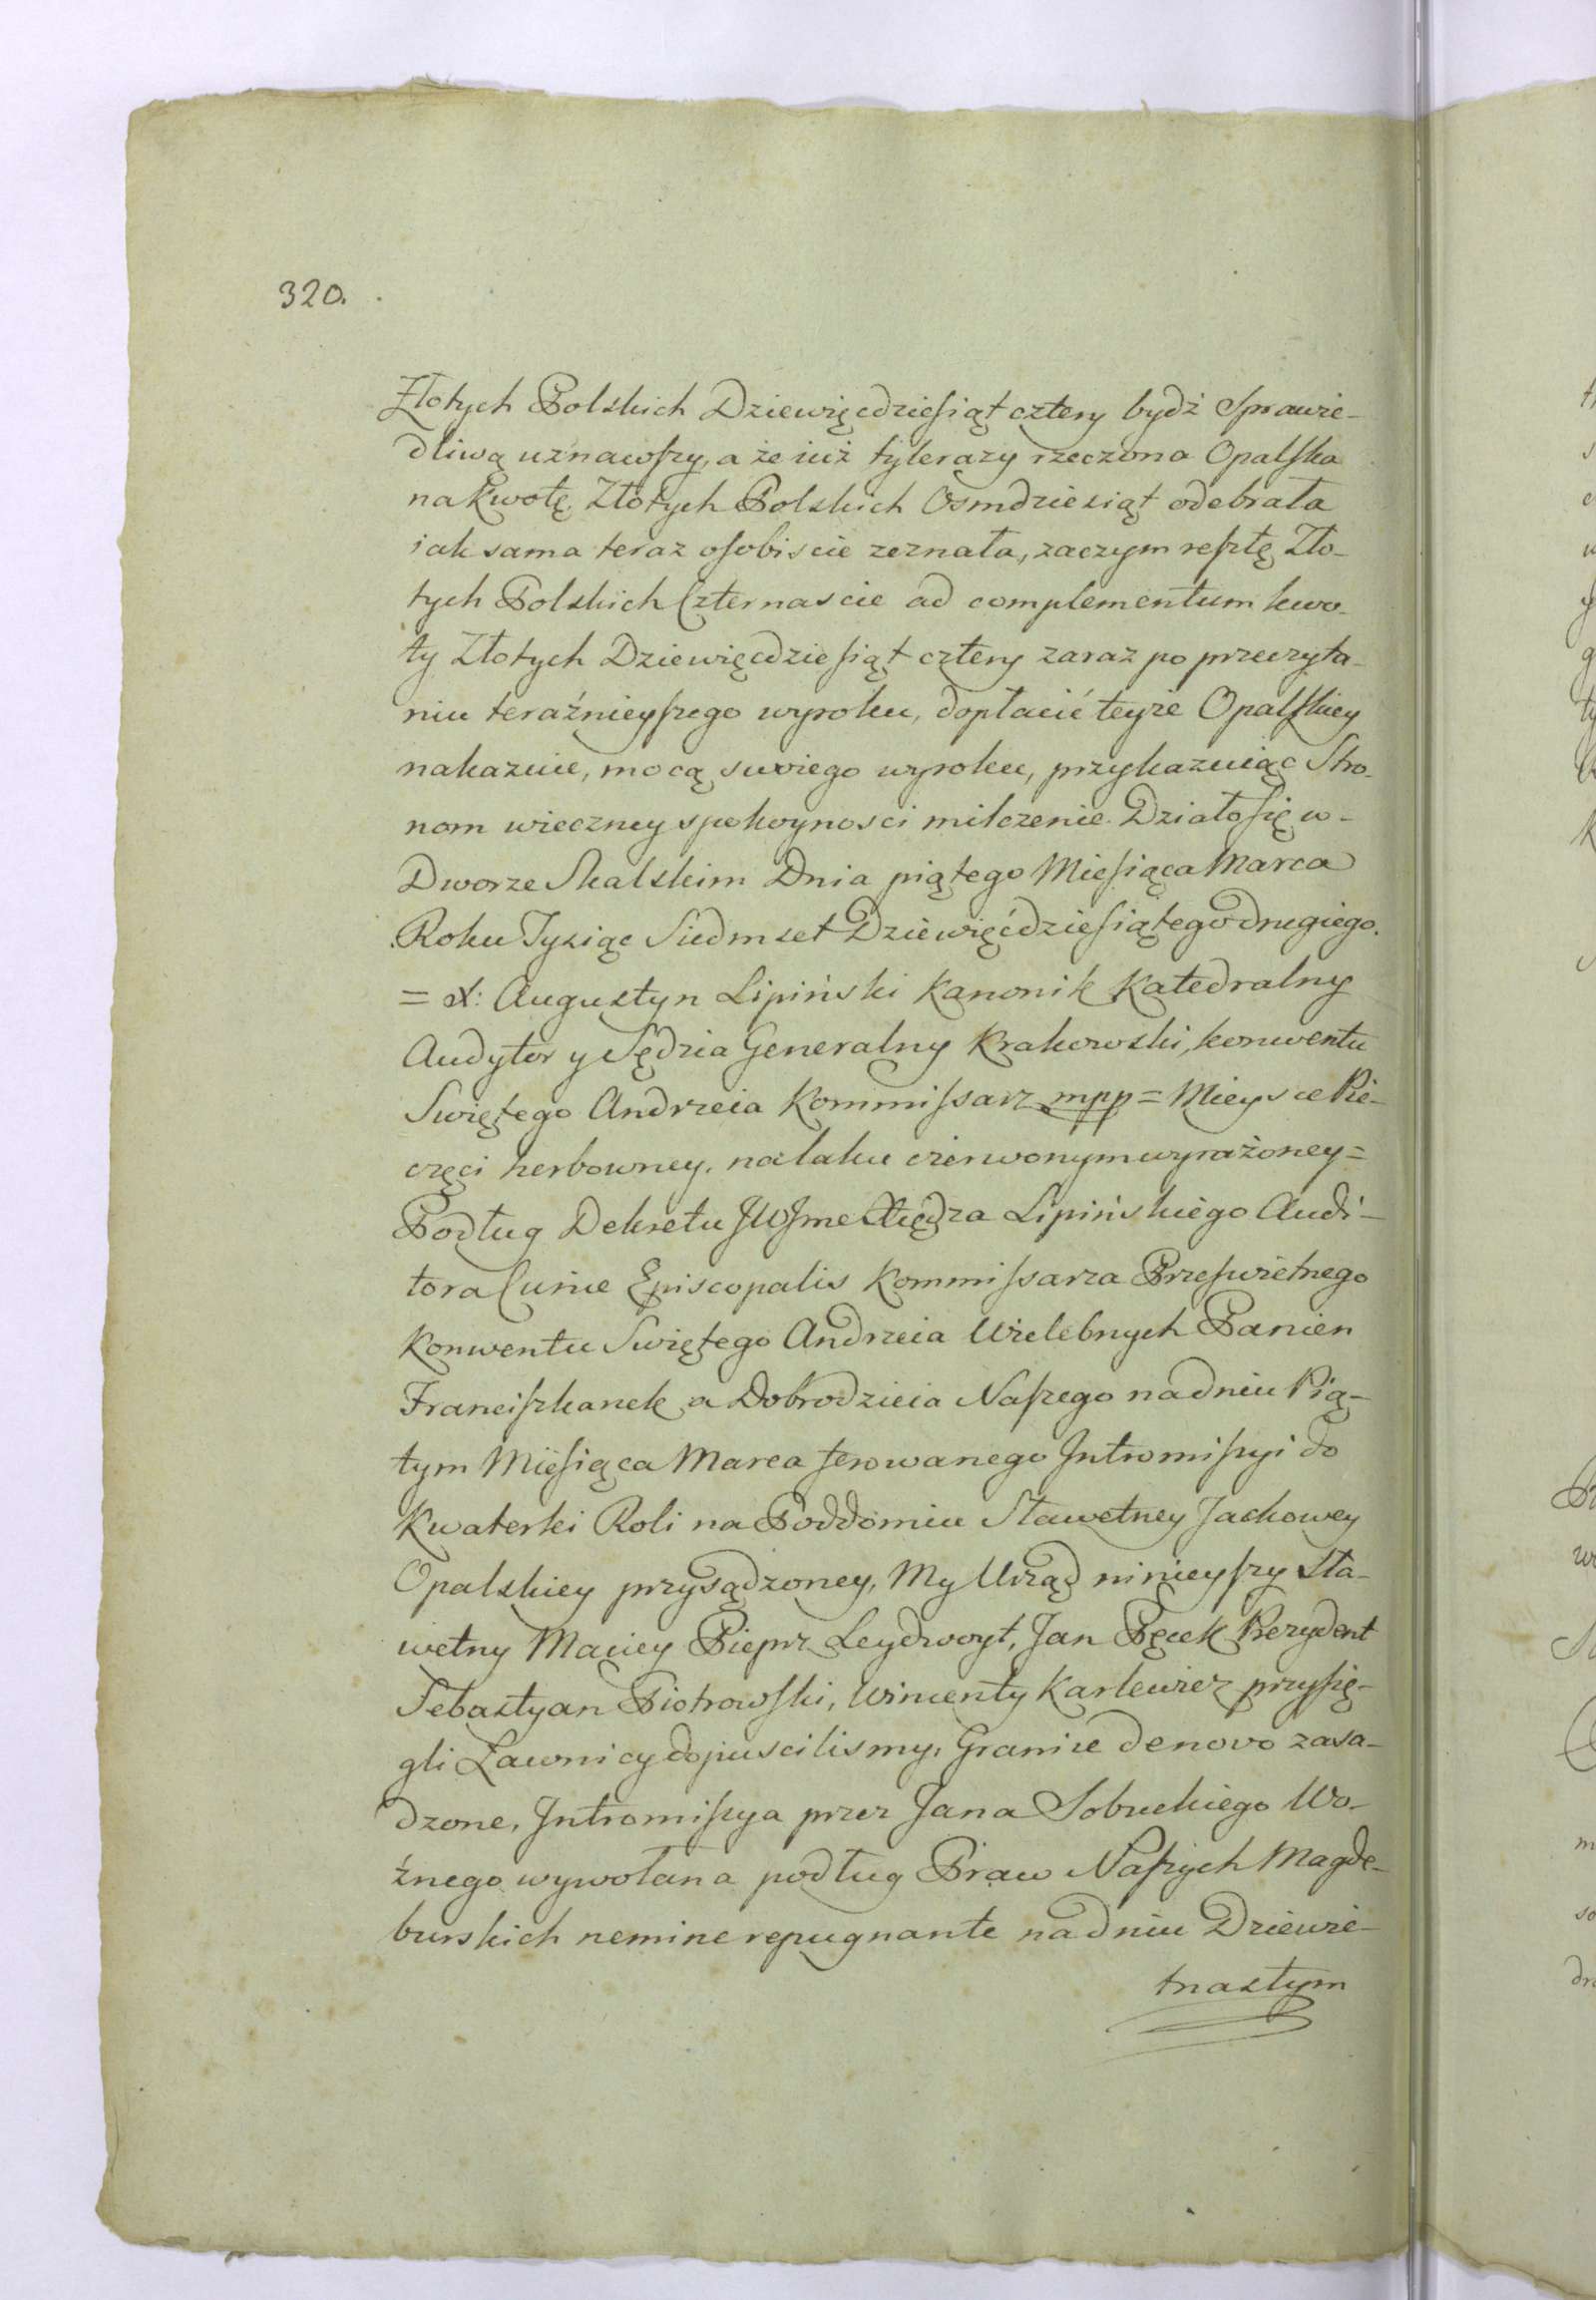 320.
Złotych Polskich Dziewięcdziesiąt cztery bydź Sprawie-
dliwą uznawszy, a że iuż tylerazy rzeczona Opalska
na kwotę Złotych Polskich Osmdziesiąt odebrała
iak sama teraz osobiscie zeznała, zaczym resztę Zło-
tych Polskich Czternascie ad complementum kwo-
ty Złotych Dziewięcdziesiąt cztery zaraz po przeczyta-
niu teraźnieyszego wyroku, dopłacić teyże Opalskiey
nakazuie, mocą swoiego wyroku, przykazuiąc Stro-
nom wieczney spokoynosci milczenie. Działo się w-
Dworze Skalskim Dnia piątego Miesiąca Marca
Roku Tysiąc Siedmset Dziewięćdziesiątego drugiego.
= X: Augustyn Lipiński Kanonik Katedralny
Audytor y Sędzia Generalny Krakowski, konwentu
Swiętego Andrzeia Kommissarz mpp = Mieysce Pie-
częci herbowney, na laku czerwonym wyrażoney=
Podług Dekretu JWJmc Xiędza Lipińskiego Audi-
tora Curiæ Episcopalis Kommissarza Przeswietnego
Konwentu Swiętego Andrzeia Wielebnych Panien
Franciszkanek a Dobrodzieia Naszego na dniu Pią-
tym Miesiąca Marca ferowanego Intromissyi do
Kwaterki Roli na Poddomiu Sławetney Jackowey
Opalskiey przysądzoney, My Urząd ninieyszy Sła-
wetny Maciey Pieprz Leydwoyt, Jan Pęcek Prezydent
Sebastyan Piotrowski, Wincenty Karlewicz przysię-
gli Ławnicy dopuscilismy, Granice denovo zasa-
dzone, Intromissya przez Jana Sobuckiego Wo-
źnego wywołana podług Praw Naszych Magde-
burskich nemine repugnante na dniu Dziewie-
tnastym